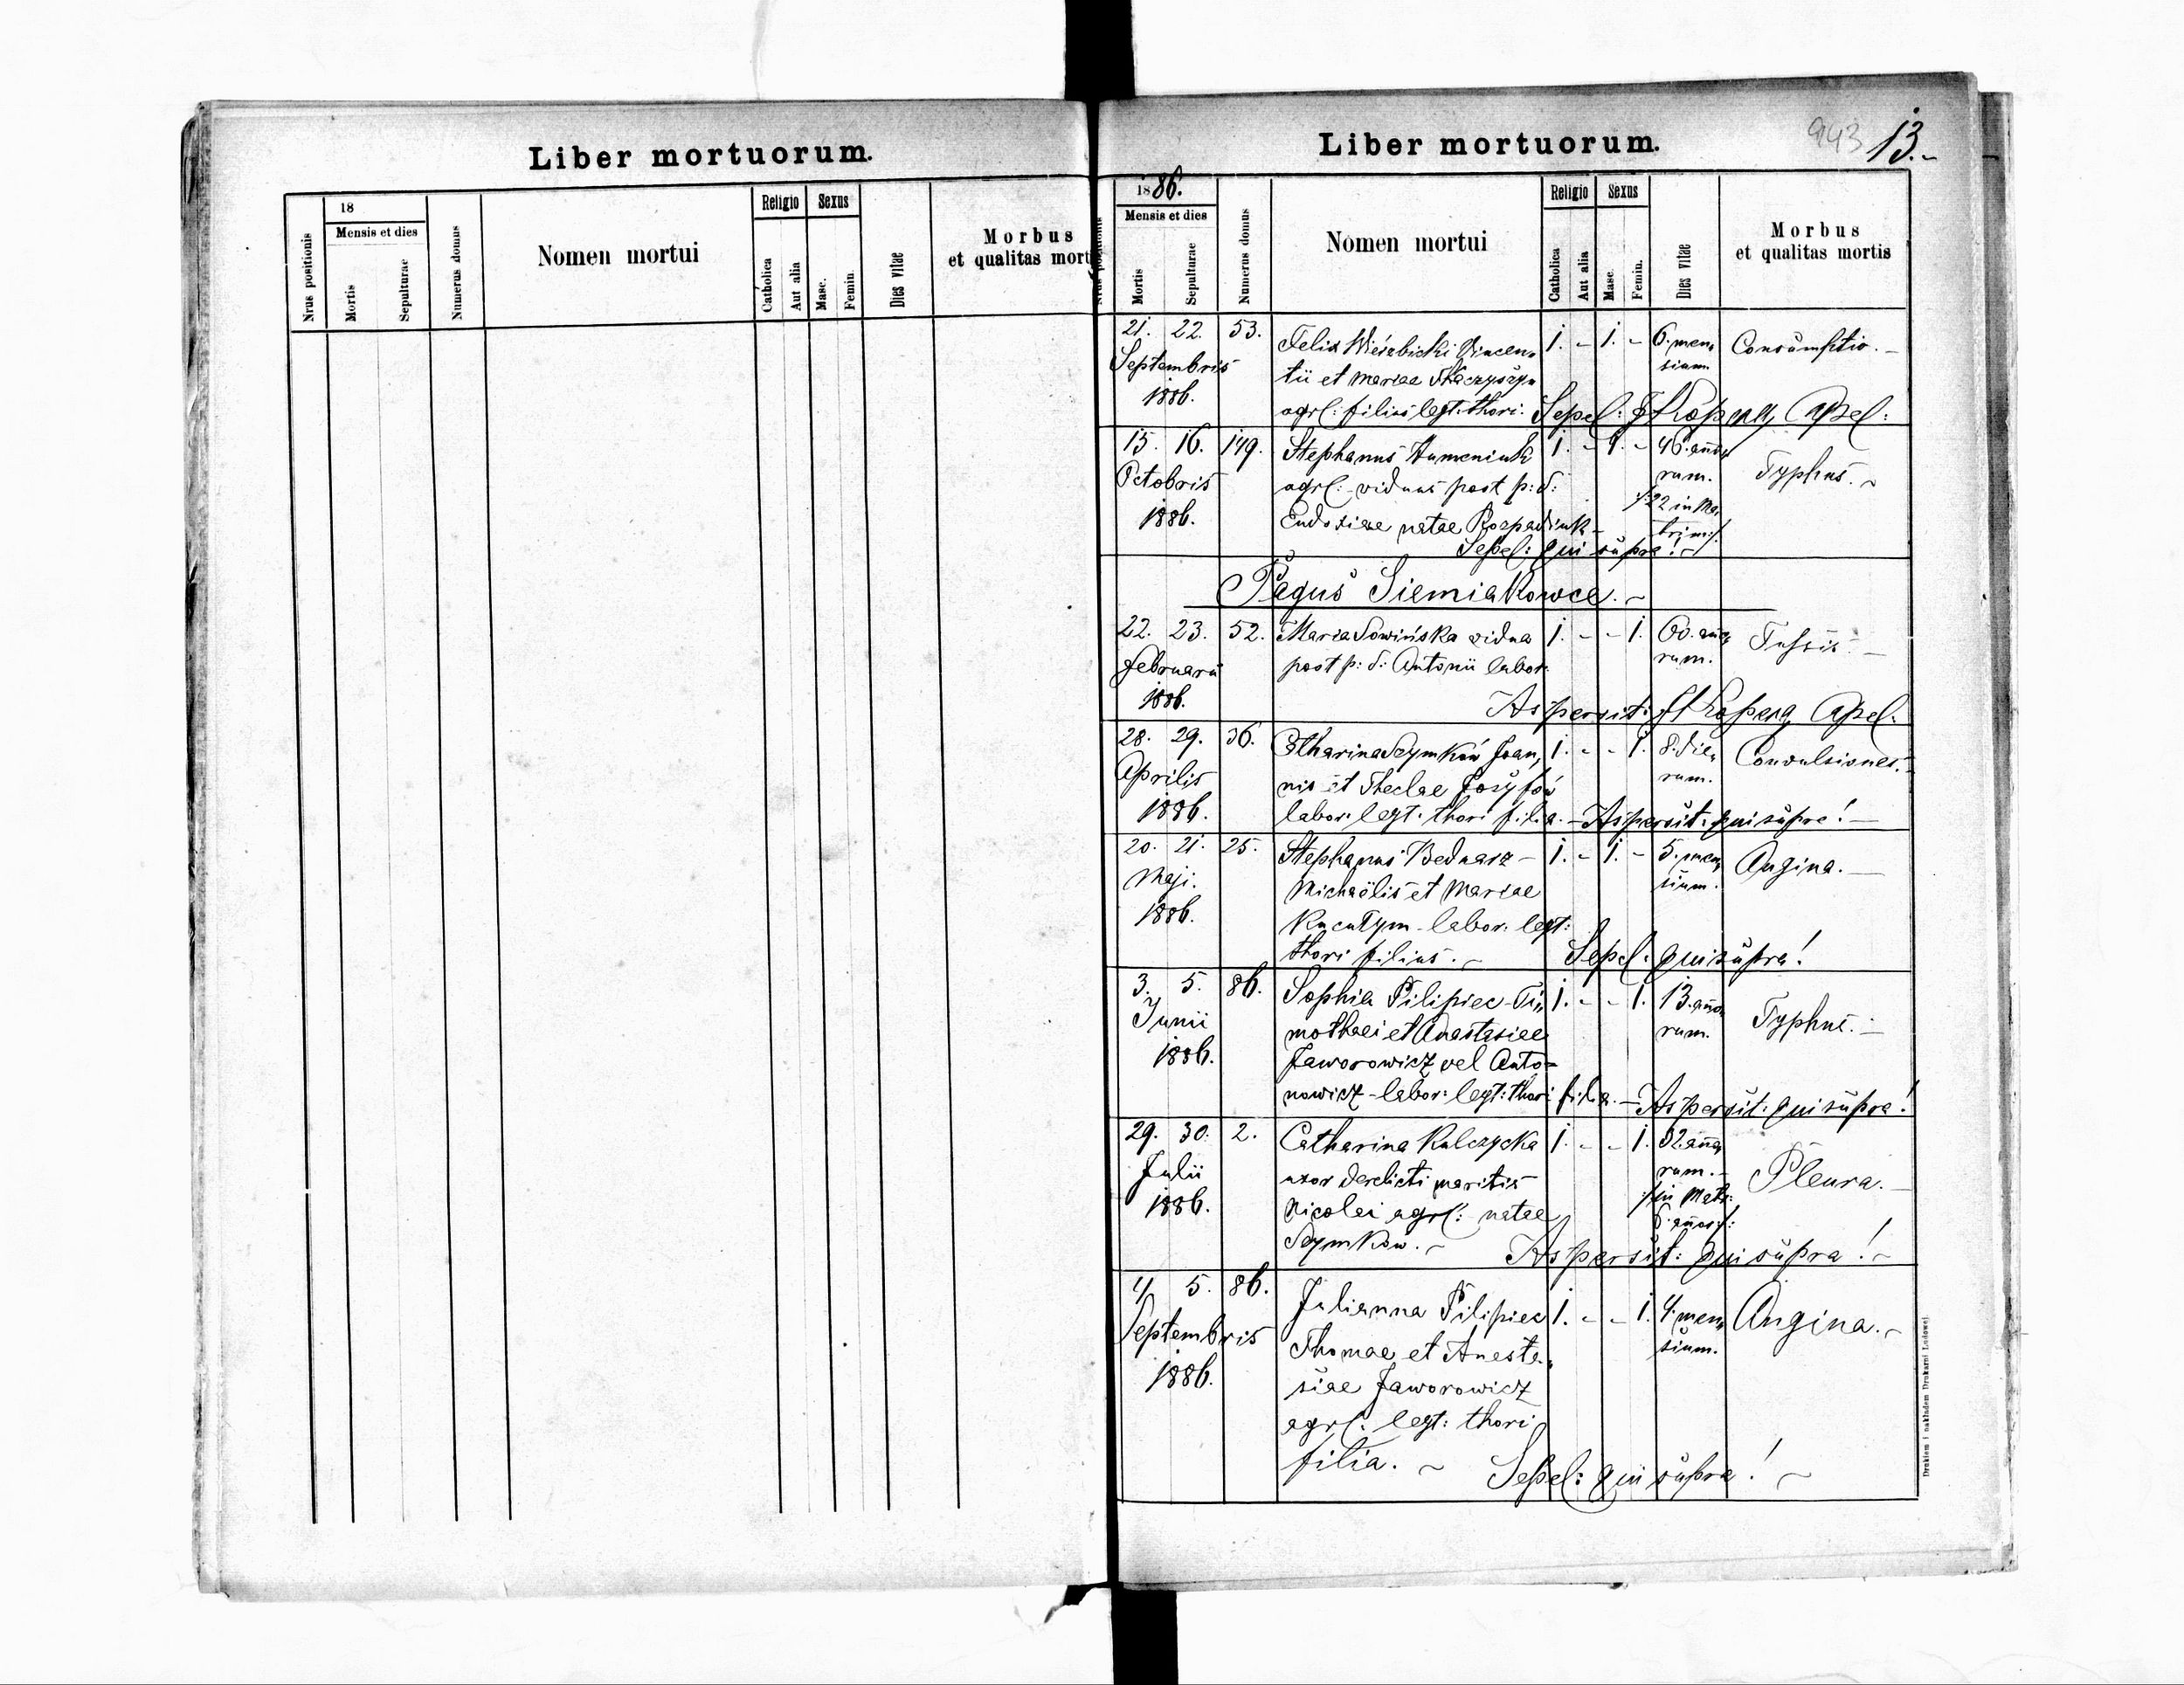 Liber mortuorum.
Nrus positionis
18
Mensis et dies
Mortis
Sepulturae
Numerus domus
Nomen mortui
Religio
Catholica
Aut alia
Sexus
Masc.
Femin.
Dies vitae
Morbus
et qualitas mort
Liber mortuorum.
943 13.-
1886.
Mensis et dies
Mortis
Sepulturae
Numerus domus
Nomen mortui
Religio
Catholica
Aut alia
Sexus
Masc.
Femin.
Dies vitae
Morbus
et qualitas mortis
21. 22. 53. Felix Wierzbicki Vincen„ 1. - 1. - 6. men„ Consumptio. -
Septembris tii et Mariae sium
1886. agrl: filius legt: thori. Sepel:
15. 16. 149. Stephanus Humeniuk 1. - 1. - 46. anno„ Typhus. ~
Octobris agrl: viduus post p: d: rum.
1886. Eudoxiae natae Rozpadiuk - 22 in Ma„
trim:
Sepel: qui supra! -
Pagus Siemiakowce. ~
22. 23. 52. Maria Sowińska vidua 1. - - 1. 60. anno„ Tussis. -
Februarii post p: d: Antonii labor. rum.
1886. Aspersit:
28. 29. 36. Catharina Szymków Joan„ 1. - - 1. 8. die„ Convulsiones. -
Aprilis nis et Theclae Jozyfów rum.
1886. labor: legt: thori filia. - Aspersit: qui supra! -
20. 21. 25. Stephanus Bednarz - 1. - 1. - 5. men„ Angina. -
Maji. Michaëlis et Mariae sium.
1886. labor: legt:
thori filius. ~ Sepel: qui supra!
3. 5. 86. Sophia Pilipiec - Ti„ 1. - - 1. 13. anno„ Typhus. -
Junii mothei et Anastasiae rum.
1886. Jaworowicz vel Anto=
nowicz - labor: legt: thori filia. - Aspersit: qui supra!
29. 30. 2. Catharina Kulczycka 1. - - 1. 32. anno„ Pleura. -
Julii uxor derelicti maritis rum. -
1886. Nicolai agrl: natae /: in Matr:
Szymków. ~ annos :/
Aspersit: qui supra! ~
4. 5. 86. Julianna Pilipiec 1. - - 1. 4. men„ Angina. ~
Septembris Thomae et Anasta„ sium.
1886. siae Jaworowicz
agrl: legt: thori
filia. ~ Sepel: qui supra! ~
Drukiem i nakładem Drukarni Ludowej